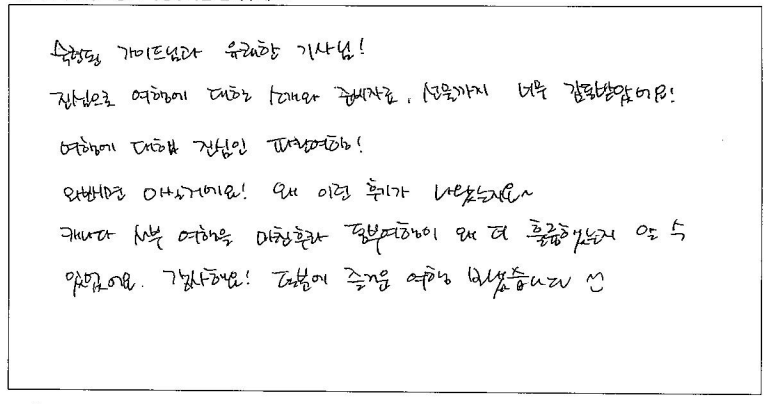 숙련된 가이드님과 유쾌한 기사님!
진심으로 여행에 대한 소개와 준비자료, 선물까지 너무 감동받았어요!
여행에 대해 진심인 파란여행!
와보면 아실거에요! 왜 이런 후기가 나왔는지요~
캐나다 서부 여행을 마친후라 동부여행이 왜 더 훌륭했는지 알 수
있었어요. 감사해요! 덕분에 즐거운 여행 보냈습니다